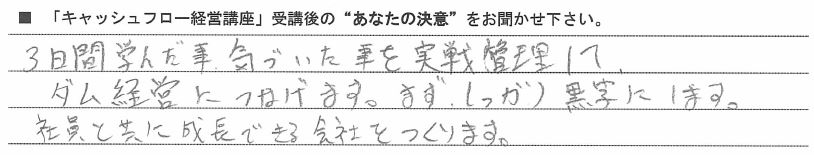 ■ 「キャッシュフロー経営講座」受講後の“あなたの決意”をお聞かせ下さい。
3日間学んだ事、気づいた事を実戦管理して、
ダム経営につなげます。まず、しっかり黒字にします。
社員と共に成長できる会社をつくります。